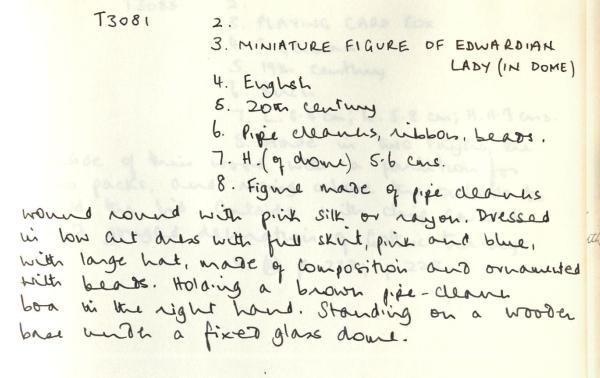 T3081 2.
3. MINIATURE FIGURE OF EDWARDIAN
LADY (IN DOME)
4. English
5. 20th century
6. Pipe cleaners, ribbon, beads.
7. H. (of dome) 5.6 cms.
8. Figure made of pipe cleaners
wound round with pink silk or rayon. Dressed
in low cut dress with full skirt, pink and blue,
with large hat, made of composition and ornamented
with beads. Holding a brown pipe-cleaner
boa in the right hand. Standing on a wooden
base under a fixed glass dome.